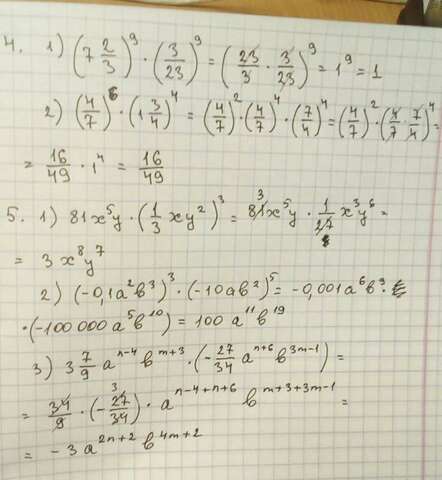 4. 1) (7 2/3)^9 · (3/23)^9 = (23/3 · 3/23)^9 = 1^9 = 1
2) (4/7)^6 · (1 3/4)^4 = (4/7)^2 · (4/7)^4 · (7/4)^4 = (4/7)^2 · (4/7 · 7/4)^4 =
= 16/49 · 1^4 = 16/49
5. 1) 81x^5y · (1/3 xy^2)^3 = 81x^5y · 1/27 x^3y^6 =
= 3x^8y^7
2) (-0,1a^2b^3)^3 · (-10ab^2)^5 = -0,001a^6b^9 ·
· (-100 000 a^5b^10) = 100 a^11 b^19
3) 3 7/9 a^(n-4) b^(m+3) · (-27/34 a^(n+6) b^(3m-1)) =
= 34/9 · (-27/34) · a^(n-4+n+6) b^(m+3+3m-1) =
= -3a^(2n+2) b^(4m+2)